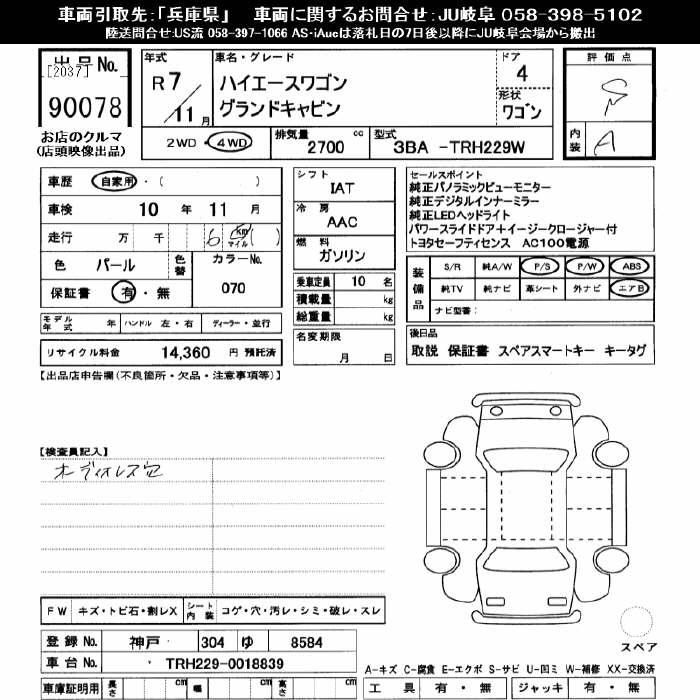 車両引取先：「兵庫県」 車両に関するお問合せ：JU岐阜 058-398-5102
陸送問合せ:US流 058-397-1066 AS-iAucは落札日の7日後以降にJU岐阜会場から搬出
出品 No.
[2037]
90078
お店のクルマ
(店頭映像出品)
年式
R 7 / 11 月
車名・グレード
ハイエースワゴン
グランドキャビン
ドア
4
形状
ワゴン
2WD ・ 4WD
排気量 2700 cc
型式 3BA -TRH229W
評価点
S
内装 A
車歴 自家用 ・( )
車検 10 年 11 月
走行 万 千 6 km マイル ( )
色 パール 色替 カラーNo.
保証書 有 ・ 無 070
シフト
IAT
冷房
AAC
燃料
ガソリン
乗車定員 10 名
積載量 kg
総重量 kg
名変期限
月 日
セールスポイント
純正パノラミックビューモニター
純正デジタルインナーミラー
純正LEDヘッドライト
パワースライドドア＋イージークロージャー付
トヨタセーフティセンス AC100電源
装備品
S/R 純A/W P/S P/W ABS
純TV 純ナビ 革シート 外ナビ エアB
ナビ型番：
後日品
取説 保証書 スペアスマートキー キータグ
モデル年式 年 ハンドル 左・右 ディーラー・並行
リサイクル料金 14,360 円 預託済
【出品店申告欄(不良箇所・欠品・注意事項等)】
【検査員記入】
オーディオレス
FW キズ・トビ石・割レX シート内装 コゲ・穴・汚レ・シミ・破レ・スレ
登録 No. 神戸 304 ゆ 8584
車台 No. TRH229-0018839
車庫証明用 長さ cm 幅 cm 高さ cm
スペア
A-キズ C-腐食 E-エクボ S-サビ U-凹ミ W-補修 XX-交換済
工具 有 ・ 無 ジャッキ 有 ・ 無